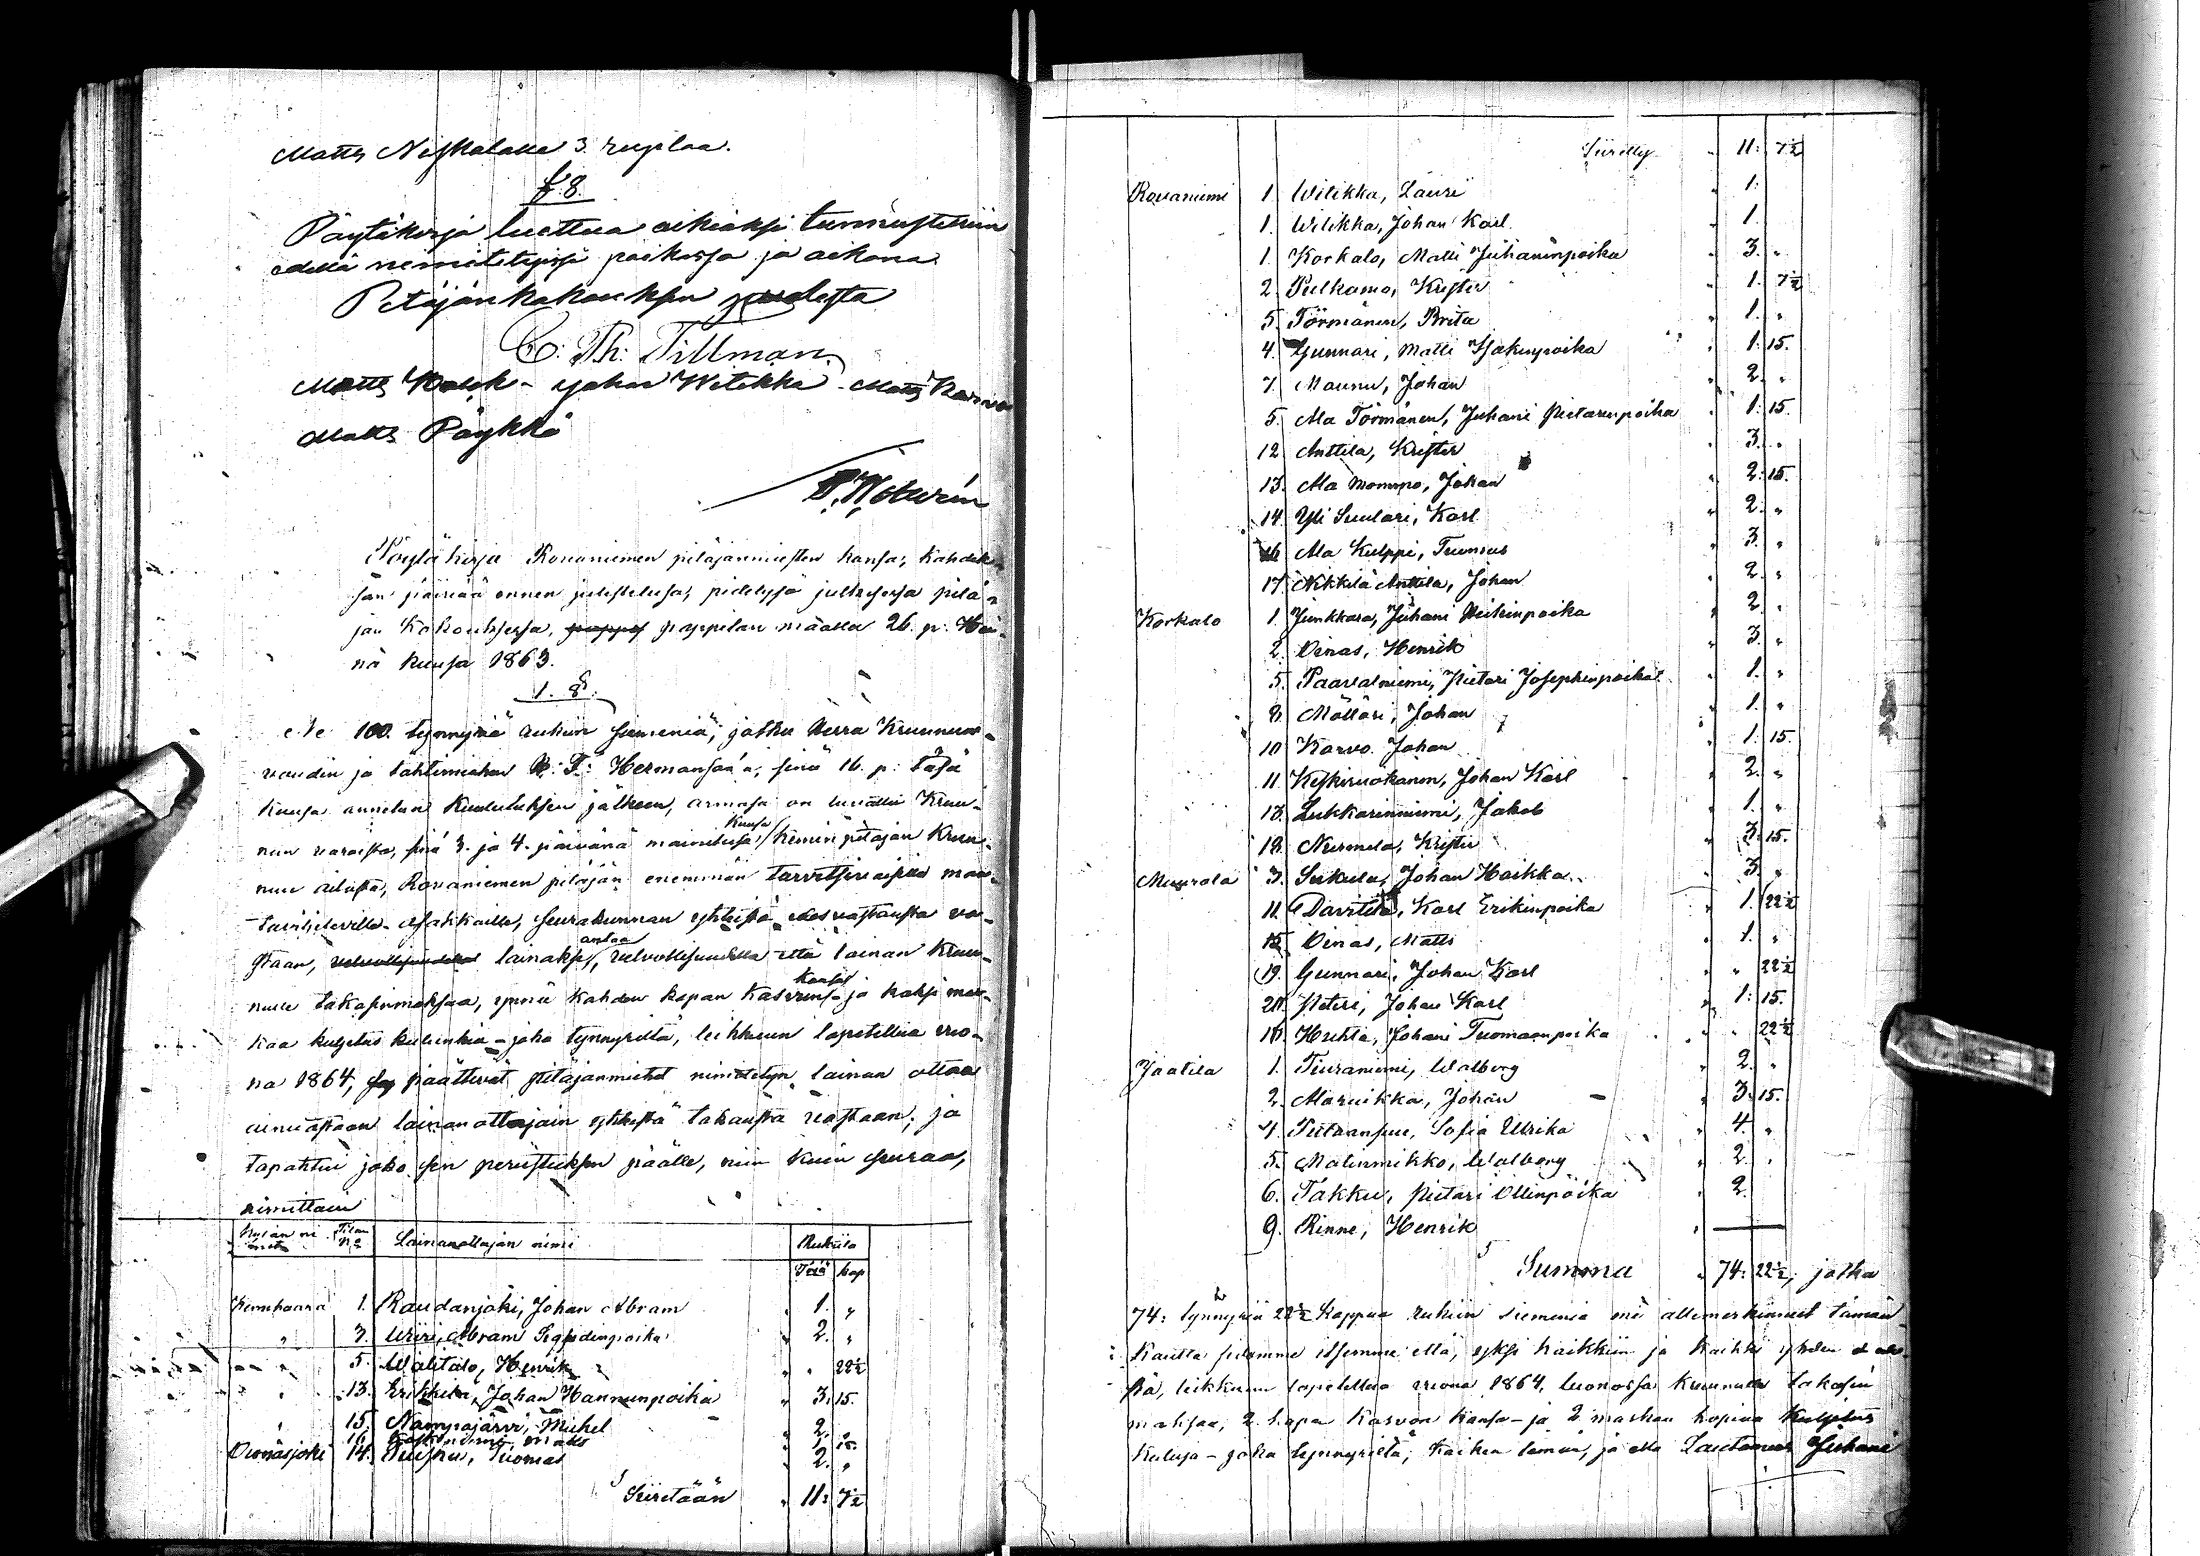 Matts Niskalalle 3. ruplaa.
§ 8.
Pöytäkirja luettua oikiaksi tunnustettiin
edellä nimitetyssä paikassa ja aikana.
Pitäjänkokouksen puolesta
C: Th: Tillman.
Matts Kolok - Johan Wilikka - Matts Karvo
Matts Pöykkö
Pöytäkirja Rovaniemen pitäjänmiesten kansa, kahdek
sän päivää ennen julistetusa, pidetyssä julkisessa pitä-
jän Kokouksessa, pappilan määllä 26. p. Hei-
nä kuusa 1863.
1. §.
Ne 100. tynnyriä rukiin siemeniä, jotka Herra Kruunun-
voudin ja tähtimiehen Hermanson'in, sinä 16. p: täsä
kuusa annetun Kuulutuksen jälkeen, armosa on luvattu Kruu-
nun varoista, sinä 3. ja 4. päivänä mainitusa Kuusa Kemin pitäjän Kruu-
nun aitasta, Rovaniemen pitäjän enemmän tarvitsevaisille maan-
viljeleville asukkaille, seurakunnan yhteistä edesvastausta vas-
staan, lainaksi antaa, velvollisuudella että lainan Kruu-
nulle takasinmaksaa, ynnä kahden kapan kasvunsa kansa ja kaksi mark-
kaa kuljetus kulunkia - joka tynnyriltä, leikkuun lopetettua vuo-
na 1864, päättivät pitäjänmiehet nimitetyn lainan ottaa
ainoastaan lainanottajain yhteistä takausta vastaan; ja
tapahtui jako sen perustuksen päälle, niin kuin seuraa,
nimittäin
Kylän ni- Tilan Lainanottajan nimi Rukiita
mitys No Tyn: kap
Kemihaara 1. Raudanjoki, Johan Abram " 1. "
" 3. Abram " 2. "
" 5. Wälitalo, Henrik " " 22½
" 13. Erkkilä, Johan Hannunpoika " 3. 15.
" 15. Nampajärvi, Michel " 2. "
16. " 1. 15.
Ounasjoki 14. Tuomas " 2. "
Siiretään " 11: 7½
Siiretty " 11: 7½
Rovaniemi 1. Wilikka, Lauri " 1.
1. Wilikka, Johan Karl " 1.
1. Korkalo, Matti Juhaninpoika " 3. "
2. Pulkamo, Krister " 1. 7½
5. Törmänen, Brita " 1. "
4. Gunnari, Matti Isakinpoika " 1. 15.
7. Maunu, Johan " 2. "
5. Ala Törmänen, Juhani Pietarinpoika " 1. 15.
12. Anttila, Krister " 3. "
13. Ala Mommo, Johan " 2. 15.
14. Yli Suutari, Karl " 2. "
16. Ala Kulppi, Tuomas " 3. "
17. Nikkilä Anttila, Johan " 2. "
Korkalo 1. Junkkara, Juhani Heikinpoika " 2. "
2. Oinas, Henrik " 3. "
5. Paavalniemi, Pietari Josephinpoika " 1. "
8. Mölläri, Johan " 1. "
10. Karvo. Johan " 1. 15.
11. Keskiruokanen, Johan Karl " 2. "
13. Lukkarinniemi, Jakob " 1. "
18. Niemelä, Krister " 3. 15.
Muurola 3. Sukula, Johan Heikka " 3. "
11. Davitila, Karl Erikinpoika " 1. 22½
15. Oinas, Matts " 1. "
19. Gunnari, Johan Karl " " 22½
20. Peteri, Johan Karl " 1: 15.
10. Huhta, Johani Tuomaanpoika " " 22½
Jaatila 1. Tiuraniemi, Walborg " 2. "
2. Maruikka, Johan " 3. 15.
4. Pietaansuu, Sofia Ulrika " 4. "
5. Matinmikko, Walborg " 2. "
6. Takku, Pietari Ollinpoika " 2.
9. Rinne, Henrik "
Summa " 74: 22½; jotka
74: tynnyriä 22½ kappaa rukiin siemeniä me allemerkinneet tämän
kautta sidomme itsemme että, yksi kaikkiin ja kaikki yhden
stä, leikkuun lopetettua vuona 1864, luonossa Kruunulle takasin
maksaa, 2. kapan kasvon kansa - ja 2 markan hopiaa kuljetus
kuluja - joka tynnyrietä; kaikki tämän, ja Ala Lautamies Juhani